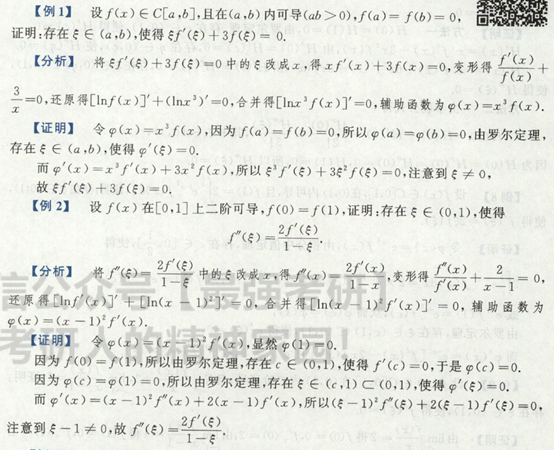 【例1】 设 f(x)∈C[a,b],且在(a,b)内可导(ab>0),f(a)=f(b)=0,
证明:存在 ξ∈(a,b),使得 ξf′(ξ)+3f(ξ)=0.
【分析】 将 ξf′(ξ)+3f(ξ)=0 中的 ξ 改成 x,得 xf′(x)+3f(x)=0,变形得 f′(x)/f(x)+
3/x=0,还原得[lnf(x)]′+(lnx³)′=0,合并得[lnx³f(x)]′=0,辅助函数为 φ(x)=x³f(x).
【证明】 令 φ(x)=x³f(x),因为 f(a)=f(b)=0,所以 φ(a)=φ(b)=0,由罗尔定理,
存在 ξ∈(a,b),使得 φ′(ξ)=0.
而 φ′(x)=x³f′(x)+3x²f(x),所以 ξ³f′(ξ)+3ξ²f(ξ)=0,注意到 ξ≠0,
故 ξf′(ξ)+3f(ξ)=0.
【例2】 设 f(x)在[0,1]上二阶可导,f(0)=f(1),证明:存在 ξ∈(0,1),使得
f″(ξ)=2f′(ξ)/(1-ξ).
【分析】 将 f″(ξ)=2f′(ξ)/(1-ξ) 中的 ξ 改成 x,得 f″(x)=2f′(x)/(1-x),变形得 f″(x)/f′(x)+2/(x-1)=0,
还原得[lnf′(x)]′+[ln(x-1)²]′=0,合并得[ln(x-1)²f′(x)]′=0,辅助函数为
φ(x)=(x-1)²f′(x).
【证明】 令 φ(x)=(x-1)²f′(x),显然 φ(1)=0.
因为 f(0)=f(1),所以由罗尔定理,存在 c∈(0,1),使得 f′(c)=0,于是 φ(c)=0.
因为 φ(c)=φ(1)=0,所以由罗尔定理,存在 ξ∈(c,1)⊂(0,1),使得 φ′(ξ)=0.
而 φ′(x)=(x-1)²f″(x)+2(x-1)f′(x),所以(ξ-1)²f″(ξ)+2(ξ-1)f′(ξ)=0,
注意到 ξ-1≠0,故 f″(ξ)=2f′(ξ)/(1-ξ).
信公众号【最强考研】
考研人的精神家园!